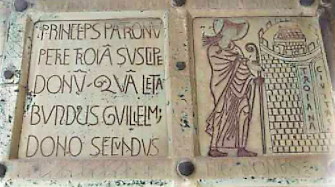 PRINCEPS PATRONU
PERE ROIĀ SUSCIPE
DONŪ QVĀ LETA
BURDUS GUILIELM;
DONO SECUNDUS
TROIANA